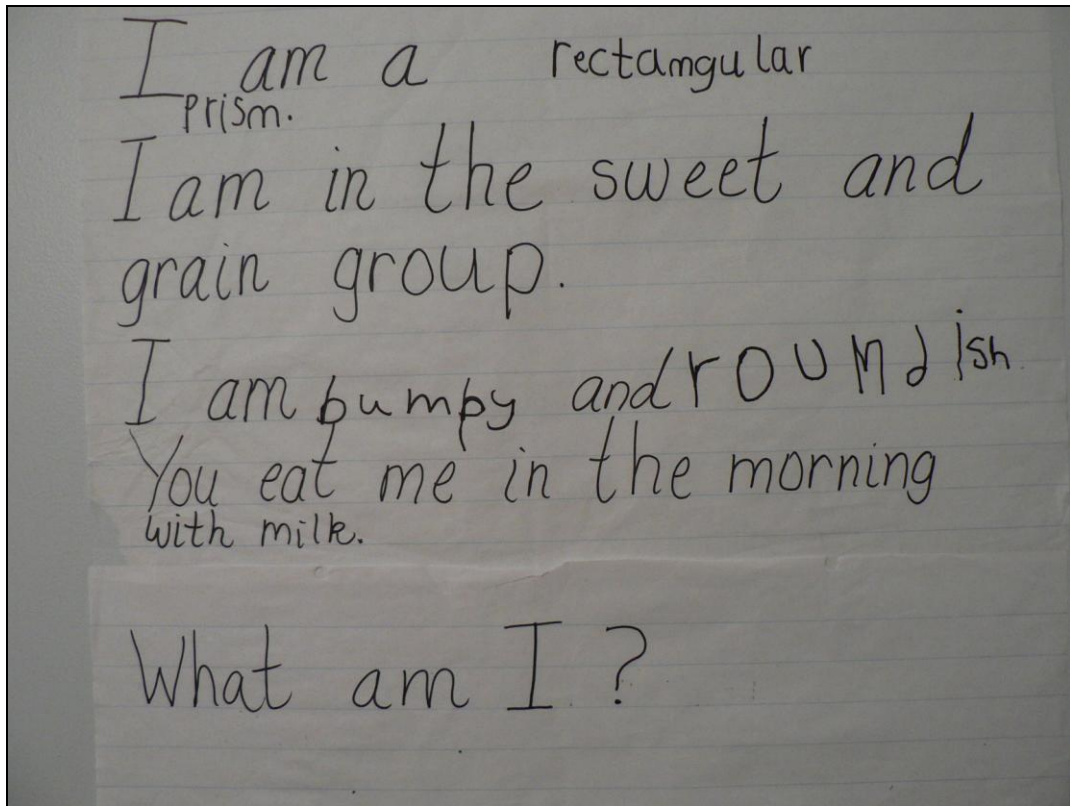 I am a rectamgular
prism.
I am in the sweet and
grain group.
I am bumpy and roumdish.
You eat me in the morning
with milk.
What am I?